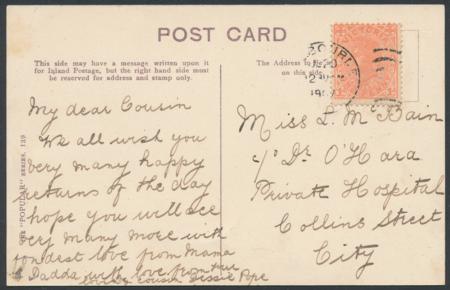 POST CARD
This side may have a message written upon it
for Inland Postage, but the right hand side must
be reserved for address and stamp only.
The Address to be
on this side.
VICTORIA
THE "POPULAR" SERIES. 139
My dear Cousin
We all wish you
very many happy
returns of the day
hope you will see
very many more with
fondest love from Mama
& Dadda with love from your
loving cousin Jessie Pope
Miss L. M Bain
c/o Dr O'Hara
Private Hospital
Collins Street
City